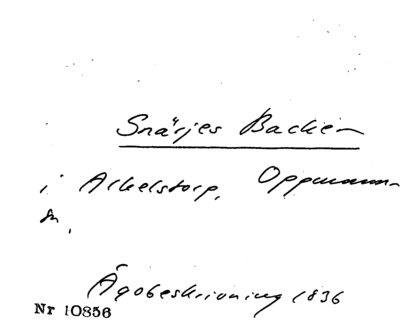 Snärjes Backe
i Arkelstorp, Oppmanna
sn,
Ägobeskrivning 1836
Nr 10856